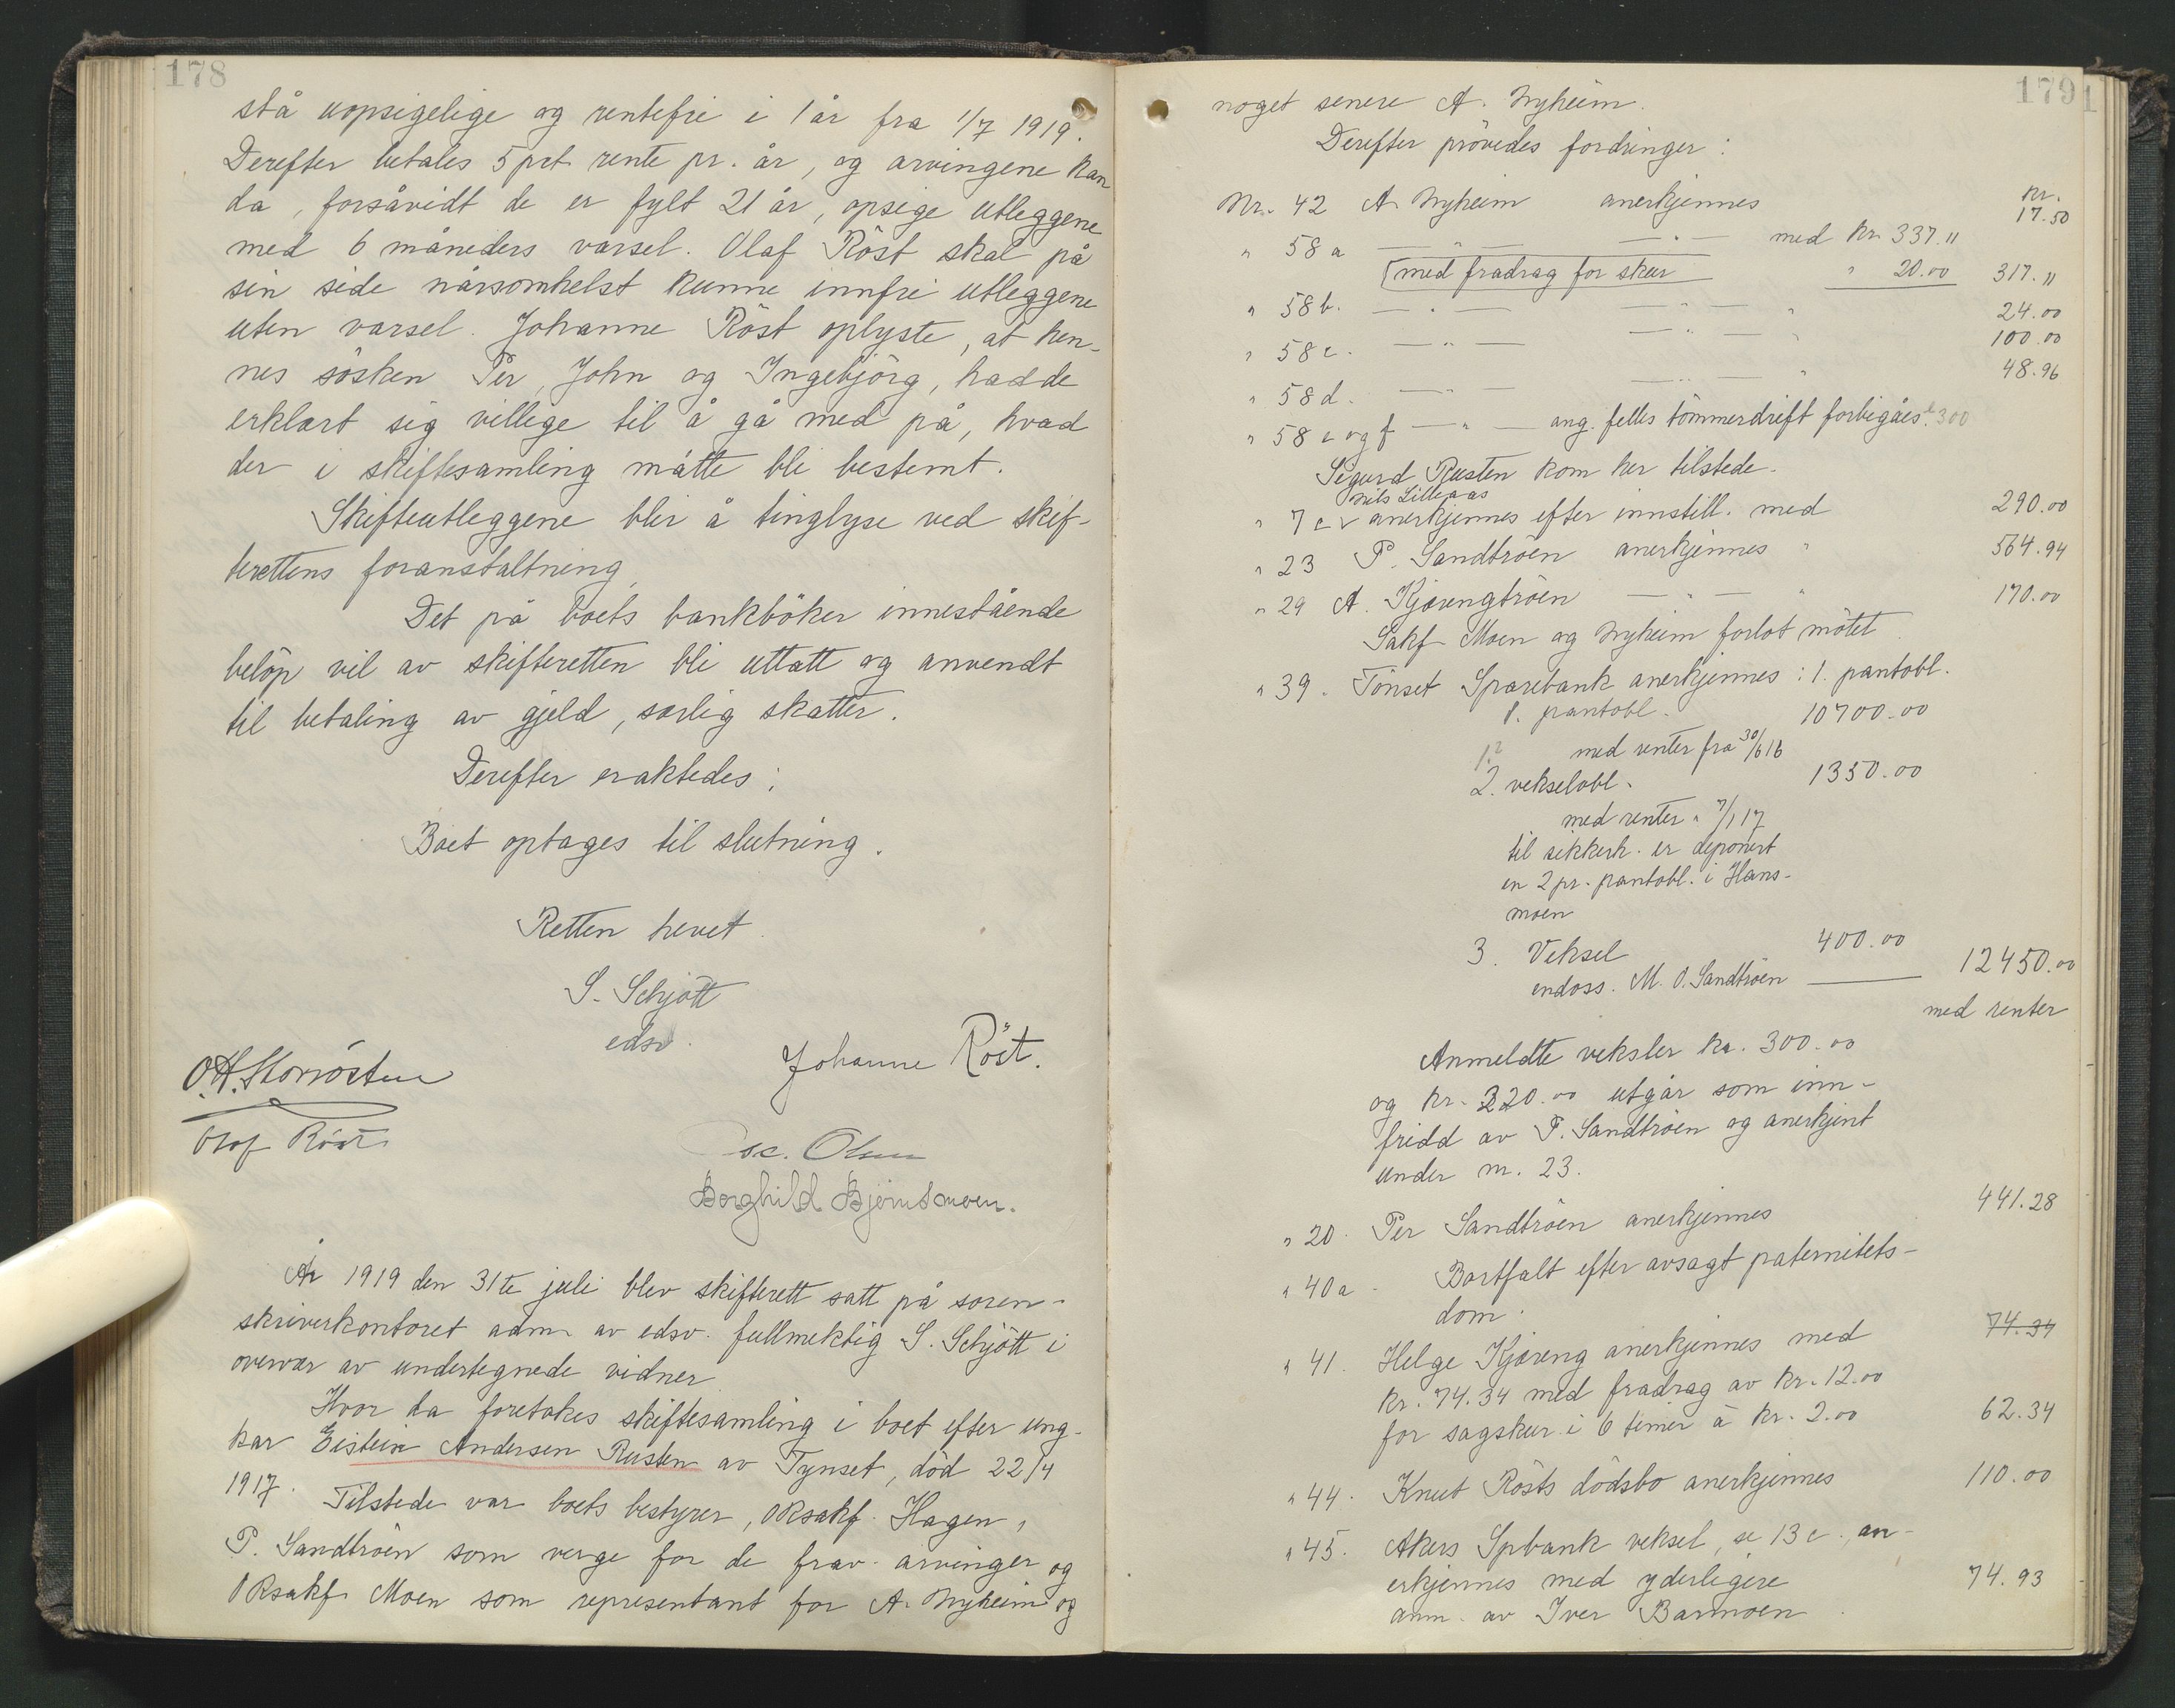 178
stå uopsigelige og rentefri i 1 år fra 1/7 1919.
Derefter betales 5 prt rente pr. år, og arvingene kan
da, forsåvidt de er fylt 21 år, opsige utleggene
med 6 måneders varsel. Olaf Röst skal på
sin side nårsomhelst kunne innfri utleggene
uten varsel. Johanne Röst oplyste, at hen-
nes sösken Per, John og Ingebjörg, hadde
erklært sig villege til å gå med på, hvad
der i skiftesamling måtte bli bestemt.
Skifteutleggene blir å tinglyse ved skif-
terettens foranstaltning.
Det på boets bankböker innestående
belöp vil av skifteretten bli uttatt og anvendt
til betaling av gjeld, særlig skatter.
Derefter eraktedes:
Boet optages til slutning.
Retten hevet.
S. Schjött
edsv.
Johanne Röst.
O.H. Storrösten
Olof Röst
Osc. Olsen
Borghild Bjørnsmoen.
År 1919 den 31te juli blev skifterett satt på soren-
skriverkontoret adm. av edsv. fullmektig S. Schjött i
overvær av undertegnede vidner.
Hvor da foretokes skiftesamling i boet efter ung-
kar Eistein Andersen Rusten av Tynset, död 22/4
1917. Tilstede var boets bestyrer, Oksakf. Hagen,
P. Sandtröen som verge for de frav. arvinger og
Oksakf. Moen som representant for A. Nyheim og
179
noget senere A. Nyheim.
Derefter prövedes fordringer:
Kr.
Nr. 42 A. Nyheim anerkjennes 17.50
" 58 a — " — — " — med kr. 337.11
med fradrag for skur " 20.00 317.11
" 58 b. — " — — " — " 24.00
" 58 c. — " — — " — " 100.00
" 58 d. — " — — " — " 48.96
" 58 e og f — " — ang. felles tömmerdrift forbigåes. 300
Sigurd Rusten kom her tilstede.
Nils Lilleaas
" 7 c v anerkjennes efter innstill. med 290.00
" 23 P. Sandtröen anerkjennes " 564.94
" 29 A. Kjærengtröen — " — " 170.00
Sakf. Moen og Nyheim forlot mötet.
" 39. Tönset Sparebank anerkjennes: 1. pantobl.
1. pantobl. 10700.00
1? med renter fra 30/6 16
2. vekselobl. 1350.00
med renter " 7/1 17
til sikkerh. er deponert
en 2 pr. pantobl. i Hans-
moen
3. Veksel 400.00
endoss. M. O. Sandtröen 12450.00
med renter
Anmeldte veksler kr. 300.00
og kr. 220.00 utgår som inn-
fridd av P. Sandtröen og anerkjent
under nr. 23.
" 20. Per Sandtröen anerkjennes 441.28
" 40 a. Bortfalt efter avsagt paternitets-
dom.
" 41. Helge Kjæreng anerkjennes med 74.34
kr. 74.34 med fradrag av kr. 12.00
for sagskur i 6 timer à kr. 2.00 62.34
" 44. Knut Rösts dödsbo anerkjennes 110.00
" 45. Akers Spbank veksel, se 13 c, an-
erkjennes med yderligere 74.93
anm. av Iver Barmoen.